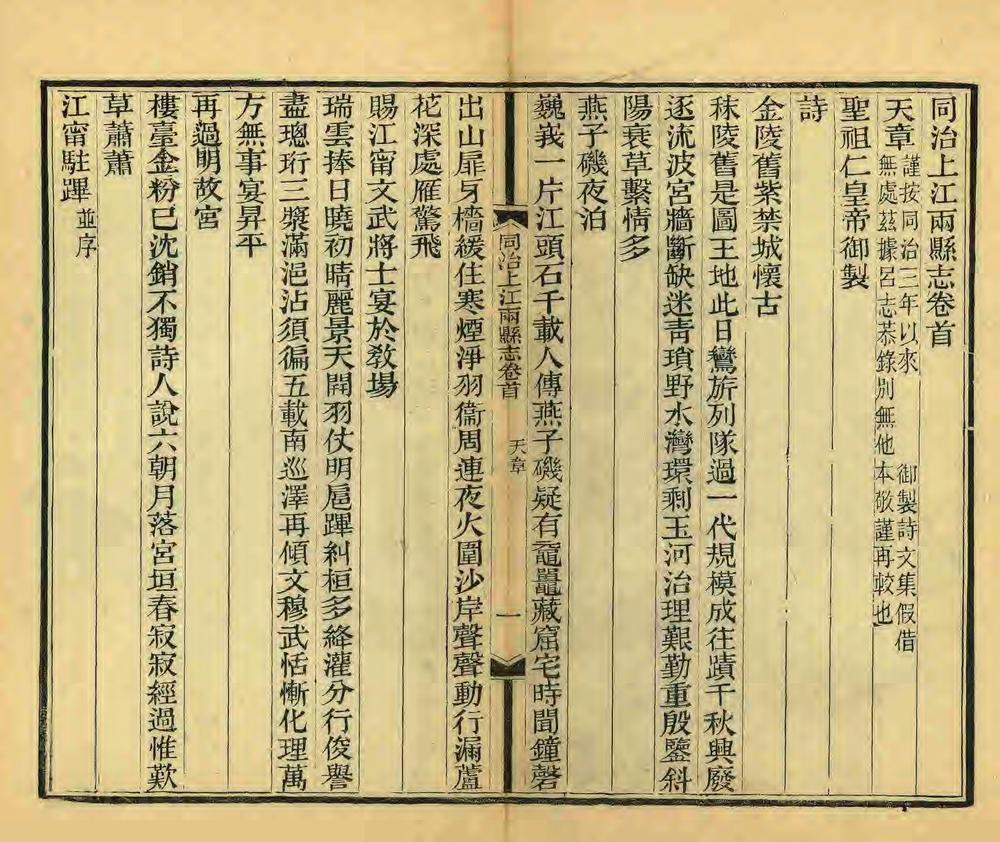 同治上江兩縣志卷首
天章 謹按同治三年以來 御製詩文集假借
無處茲據呂志恭錄別無他本敬謹再較也
聖祖仁皇帝御製
詩
金陵舊紫禁城懷古
秣陵舊是圖王地此日鸞旂列隊過一代規模成往蹟千秋興廢
逐流波宮牆斷缺迷靑瑣野水灣環剩玉河治理艱勤重殷鑒斜
陽衰草繫情多
燕子磯夜泊
巍峩一片江頭石千載人傳燕子磯疑有黿鼉藏窟宅時聞鐘磬
同治上江兩縣志卷首 天章 一
出山扉牙檣緩住寒煙淨羽衞周連夜火圍沙岸聲聲動行漏蘆
花深處雁驚飛
賜江甯文武將士宴於敎場
瑞雲捧日曉初晴麗景天開羽仗明扈蹕糾桓多絳灌分行俊譽
盡璁珩三漿滿浥沾須徧五載南巡澤再傾文穆武恬慚化理萬
方無事宴昇平
再過明故宮
樓臺金粉已沈銷不獨詩人說六朝月落宮垣春寂寂經過惟歎
草蕭蕭
江甯駐蹕 並序